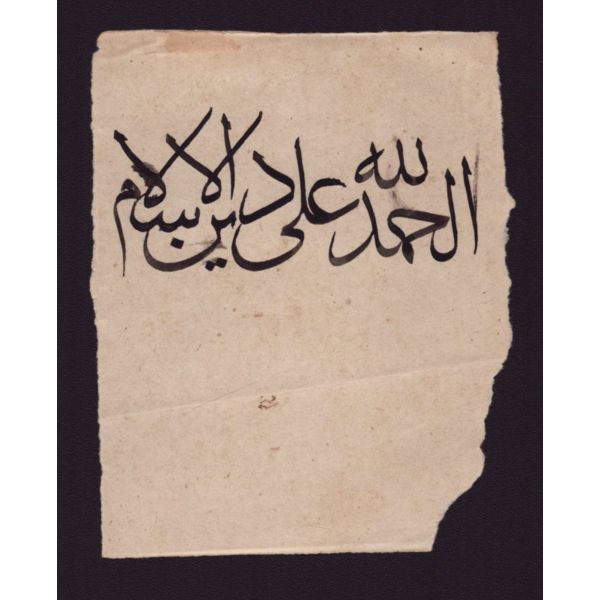 الحمد لله على دين الاسلام